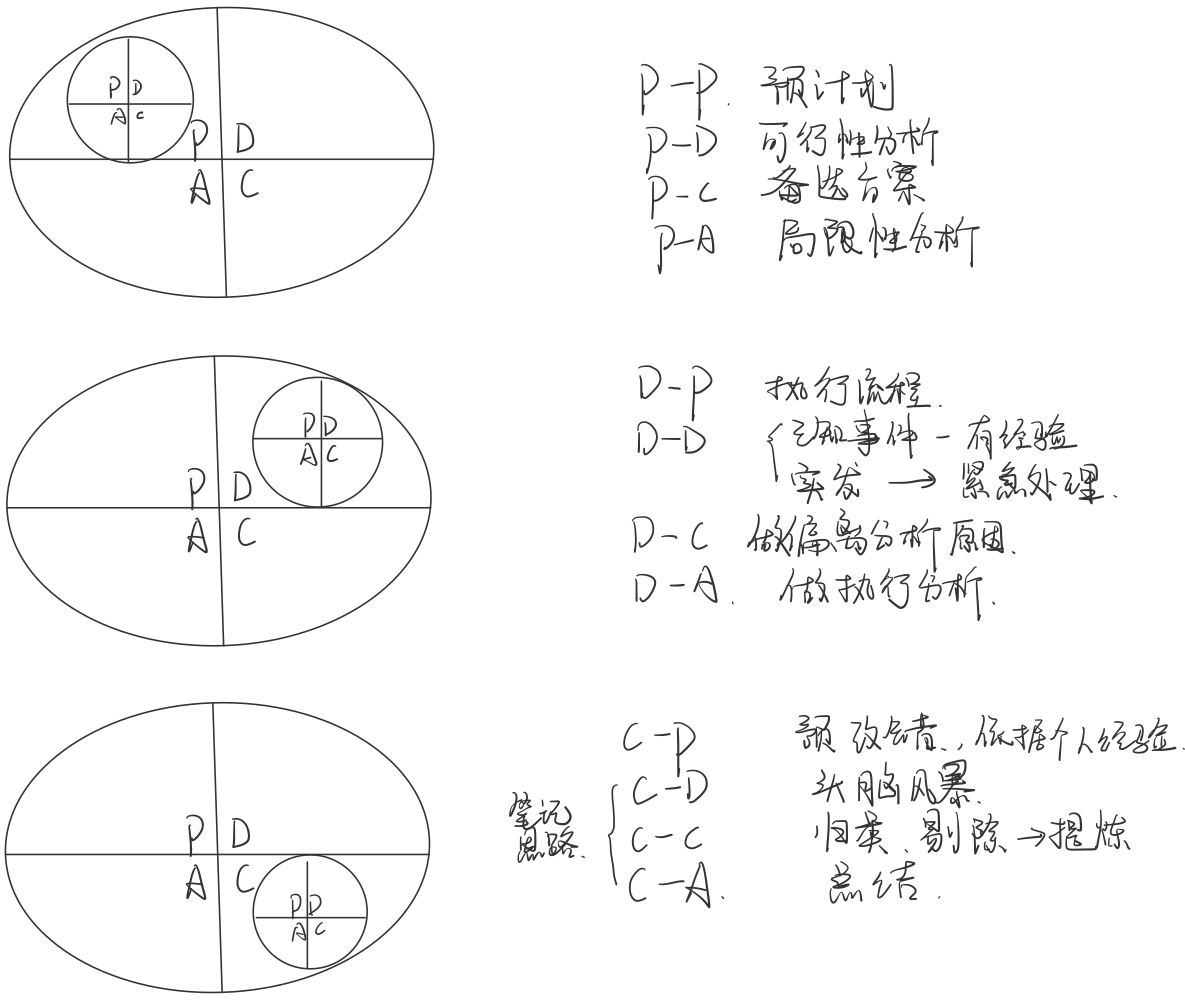 P D
A C
P D
A C
P-P. 预计划
P-D 可行性分析
P-C 备选方案
P-A 局限性分析
P D
A C
P D
A C
D-P 执行流程.
D-D { 已知事件 - 有经验
突发 → 紧急处理.
D-C 做偏离分析原因.
D-A. 做执行分析.
P D
A C
P D
A C
C-P 预改错., 依据个人经验.
笔记
思路.
C-D 头脑风暴.
C-C 归类、剔除→提炼
C-A. 总结.